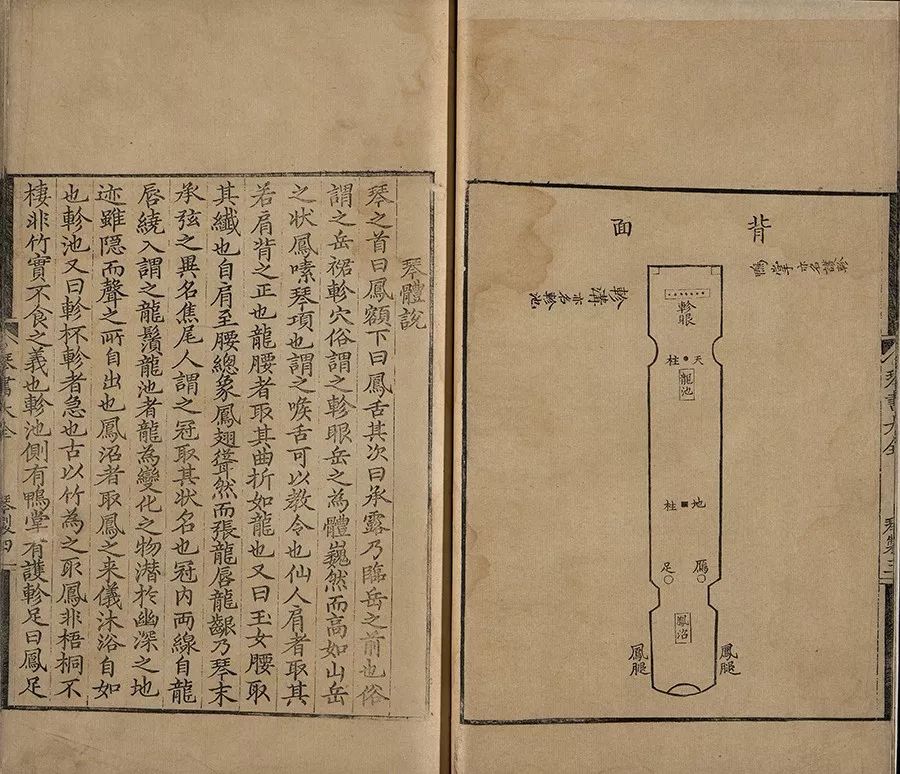 背面
軫溝
亦名軫池
軫眼
天柱
龍池
地柱
鴈足
鳳沼
鳳腿
鳳腿
琴體說
琴之首曰鳳額下曰鳳舌其次曰承露乃臨岳之前也俗
謂之岳裙軫穴俗謂之軫眼岳之為體巍然而高如山岳
之狀鳳嗉琴項也謂之喉舌可以教令也仙人肩者取其
若肩背之正也龍腰者取其曲折如龍也又曰玉女腰取
其纖也自肩至腰總象鳳翅聳然而張龍唇龍齦乃琴末
承弦之異名焦尾人謂之冠取其狀名也冠內両線自龍
唇繞入謂之龍鬚龍池者龍為變化之物潛於幽深之地
迹雖隱而聲之所自出也鳳沼者取鳳之来儀沐浴自如
也軫池又曰軫杯軫者急也古以竹為之取鳳非梧桐不
棲非竹實不食之義也軫池側有鴨掌有護軫足曰鳳足
琴書大全
琴製四